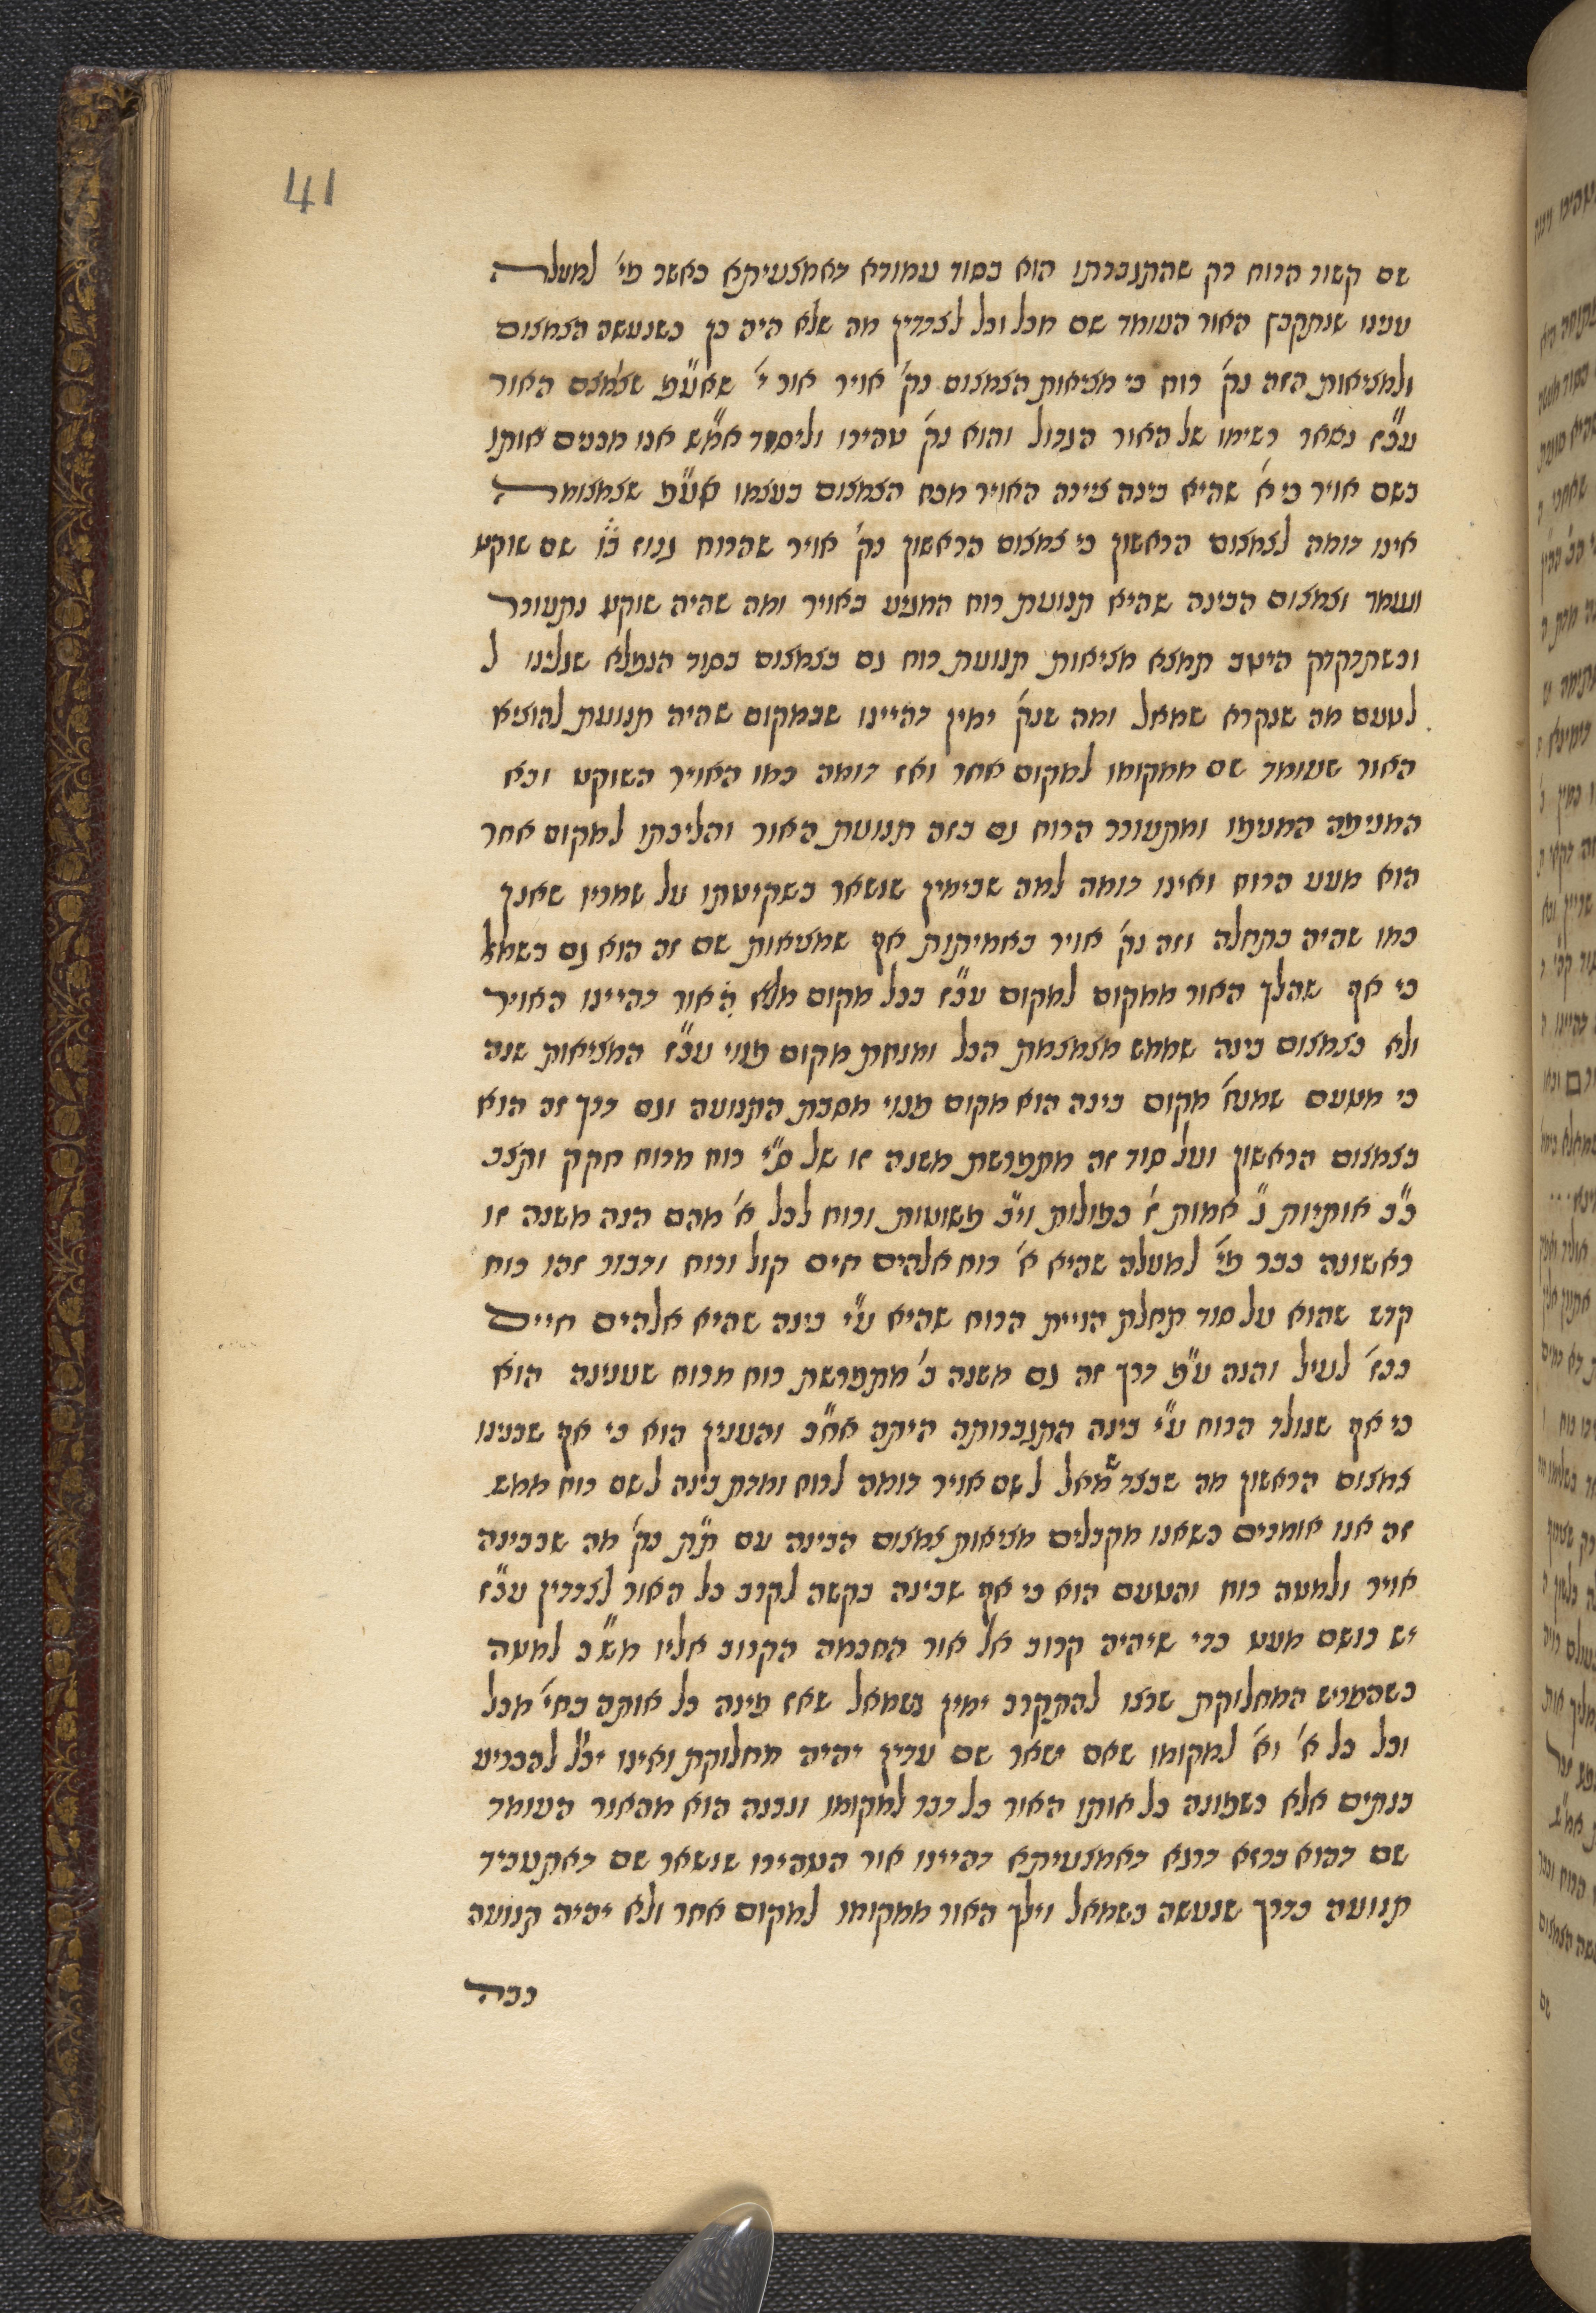 41
שם קשור הרוח רק שהתגברתו הוא בסוד עמודא דאמצעיתא כאשר פי' למעלה
ענינו שנתקבץ האור העומד שם מכל וכל לצדדין מה שלא היה כן כשנעשה הצמצום
ולמציאות הזה נק' רוח כי מציאות הצמצום נק' אויר אור י' שאע"פ שצמצם האור
עכ"ז נשאר רשימו של האור הגדול והוא נק' טהירו וליסוד אמ"ש אנו מכנים אותו
בשם אויר כי א' שהיא בינה ציירה האויר מכח הצמצום בעצמו אע"פ שצמצומה
אינו דומה לצמצום הראשון כי צמצום הראשון נק' אויר שהרוח גנוז בו שם שוקט
ועומד וצמצום הבינה שהיא תנועת רוח המניע באויר ומה שהיה שוקט נתעורר
וכשתדקדק היטב תמצא מציאות תנועת רוח גם בצמצום בסוד הנפלא שגלינו ל
לטעם מה שנקרא שמאל ומה שנק' ימין דהיינו שבמקום שהיה תנועת להוציא
האור שעומד שם ממקומו למקום אחר ואז דומה כמו האויר השוקט ובא
המניפה המניפו ומתעורר הרוח גם בזה תנועת האור והליכתו למקום אחר
הוא מעט הרוח ואינו דומה למה שבימין שנשאר בשקיטתו על שמריו שאנך
כמו שהיה בתחלה וזה נק' אויר באמיתות אף שמציאות שם זה הוא גם בשמאל
כי אף שהלך האור ממקום למקום עכ"ז בכל מקום מלא האור דהיינו האויר
ולא בצמצום בינה שממש מצמצמת הכל ומנחת מקום פנוי עכ"ז המציאות שוה
כי מטעם שמצא' מקום בינה הוא מקום פנוי מסבת התנועה וגם דרך זה הוא
בצמצום הראשון ועל סוד זה מתפרשת משנה זו של ס"י רוח מרוח חקק וחצב
כ"ב אותיות ג' אמות ז' כפולות וי"ב פשוטות ורוח לכל א' מהם הנה משנה זו
ראשונה כבר פי' למעלה שהיא א' רוח אלהים חיים קול ורוח ודבור זהו רוח
קדש שהוא על סוד תחלת הויית הרוח שהיא ע"י בינה שהיא אלהים חיים
כנז' לעיל והנה ע"פ דרך זה גם משנה ב' מתפרשת רוח מרוח שענינה הוא
כי אף שנולד הרוח ע"י בינה התגברותה היתה אח"כ והענין הוא כי אף שכנינו
צמצום הראשון מה שבצד שמאל לשם אויר דומה לרוח ומדת בינה לשם רוח ממש
זה אנו אומרים כשאנו מקבלים מציאות צמצום הבינה עם ת"ת נק' מה שבבינה
אויר ולמטה רוח והטעם הוא כי אף שבינה בקשה לקרב כל האור לצדדין עכ"ז
יש רושם מעט כדי שיהיה קרוב אל אור החכמה הקרוב אליו מש"כ למטה
כשהפריש המחלוקת שרצו להתקרב ימין בשמאל שאז פינה כל אותה בחי' מכל
וכל כל א' וא' למקומו שאם ישאר שם עדיין יהיה מחלוקת ואינו יכול להכריע
בנתים אלא כשפונה כל אותו האור כל דבר למקומו ונבנה הוא מהאור העומד
שם דהוא ברזא דרגא דאמצעיתא דהיינו אור הטהירו שנשאר שם דאתעביד
תנועה בדרך שנעשה בשמאל וילך האור ממקומו למקום אחר ולא יהיה תנועה
רבה